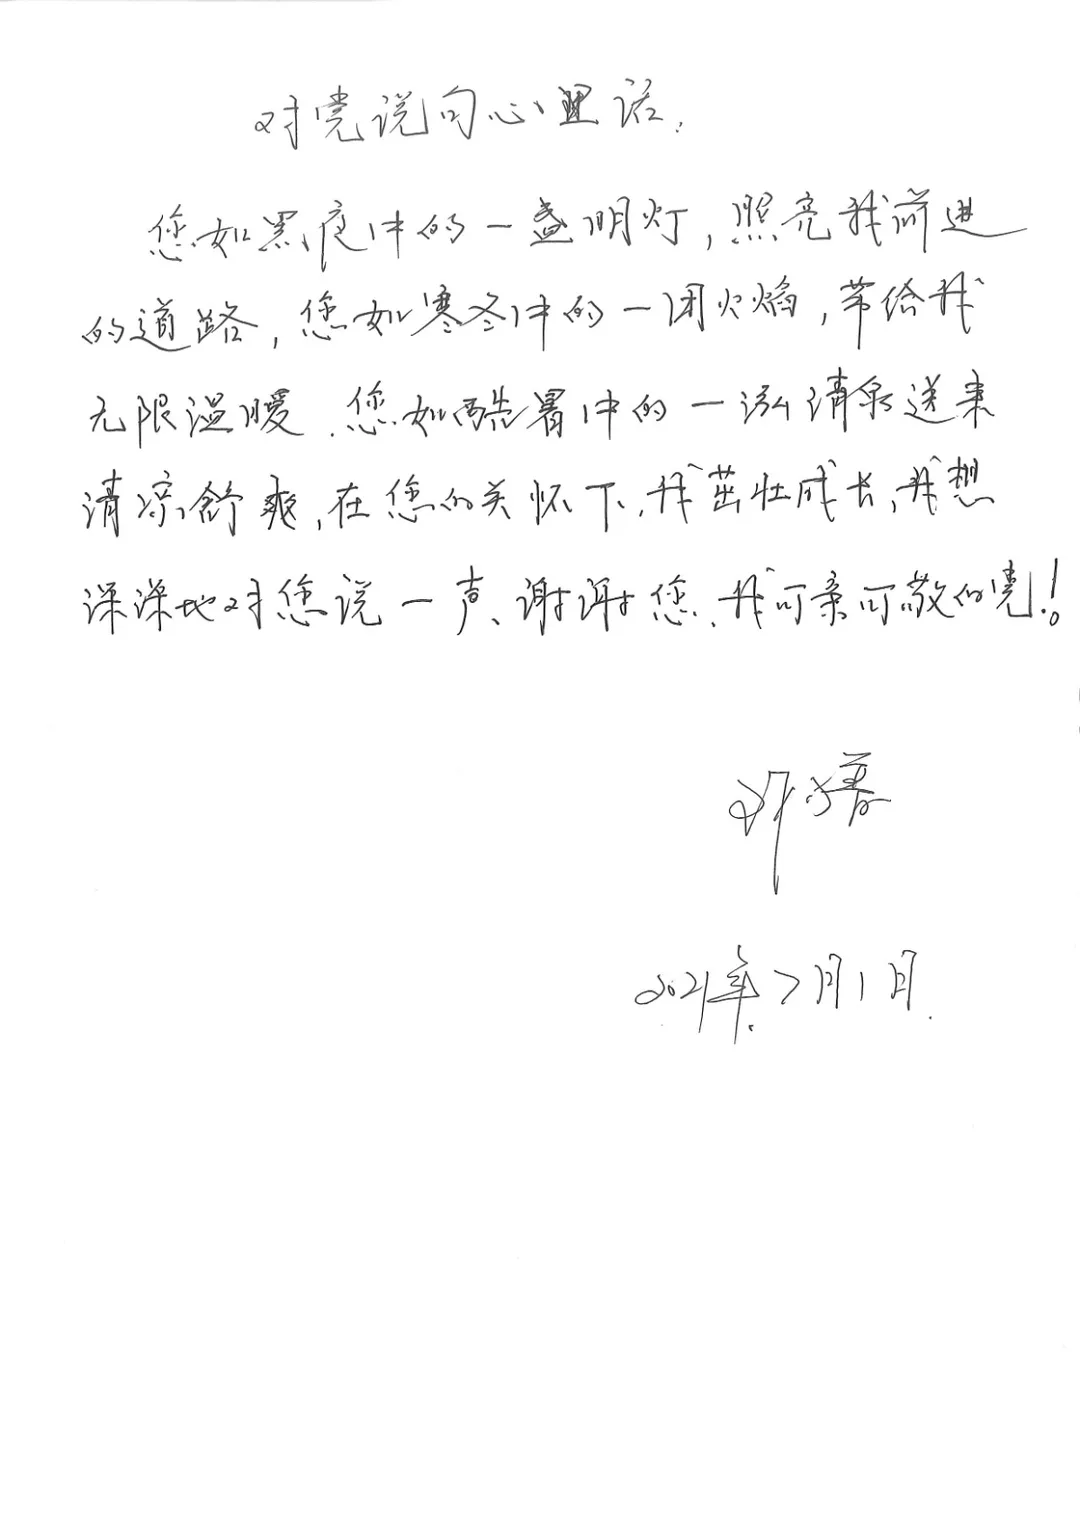 对党说句心里话.
您如黑夜中的一盏明灯,照亮我前进
的道路,您如寒冬中的一团火焰,带给我
无限温暖.您如酷暑中的一泓清泉送来
清凉舒爽,在您的关怀下,我茁壮成长,我想
深深地对您说一声、谢谢您、我可亲可敬的党!
2021年7月1日.